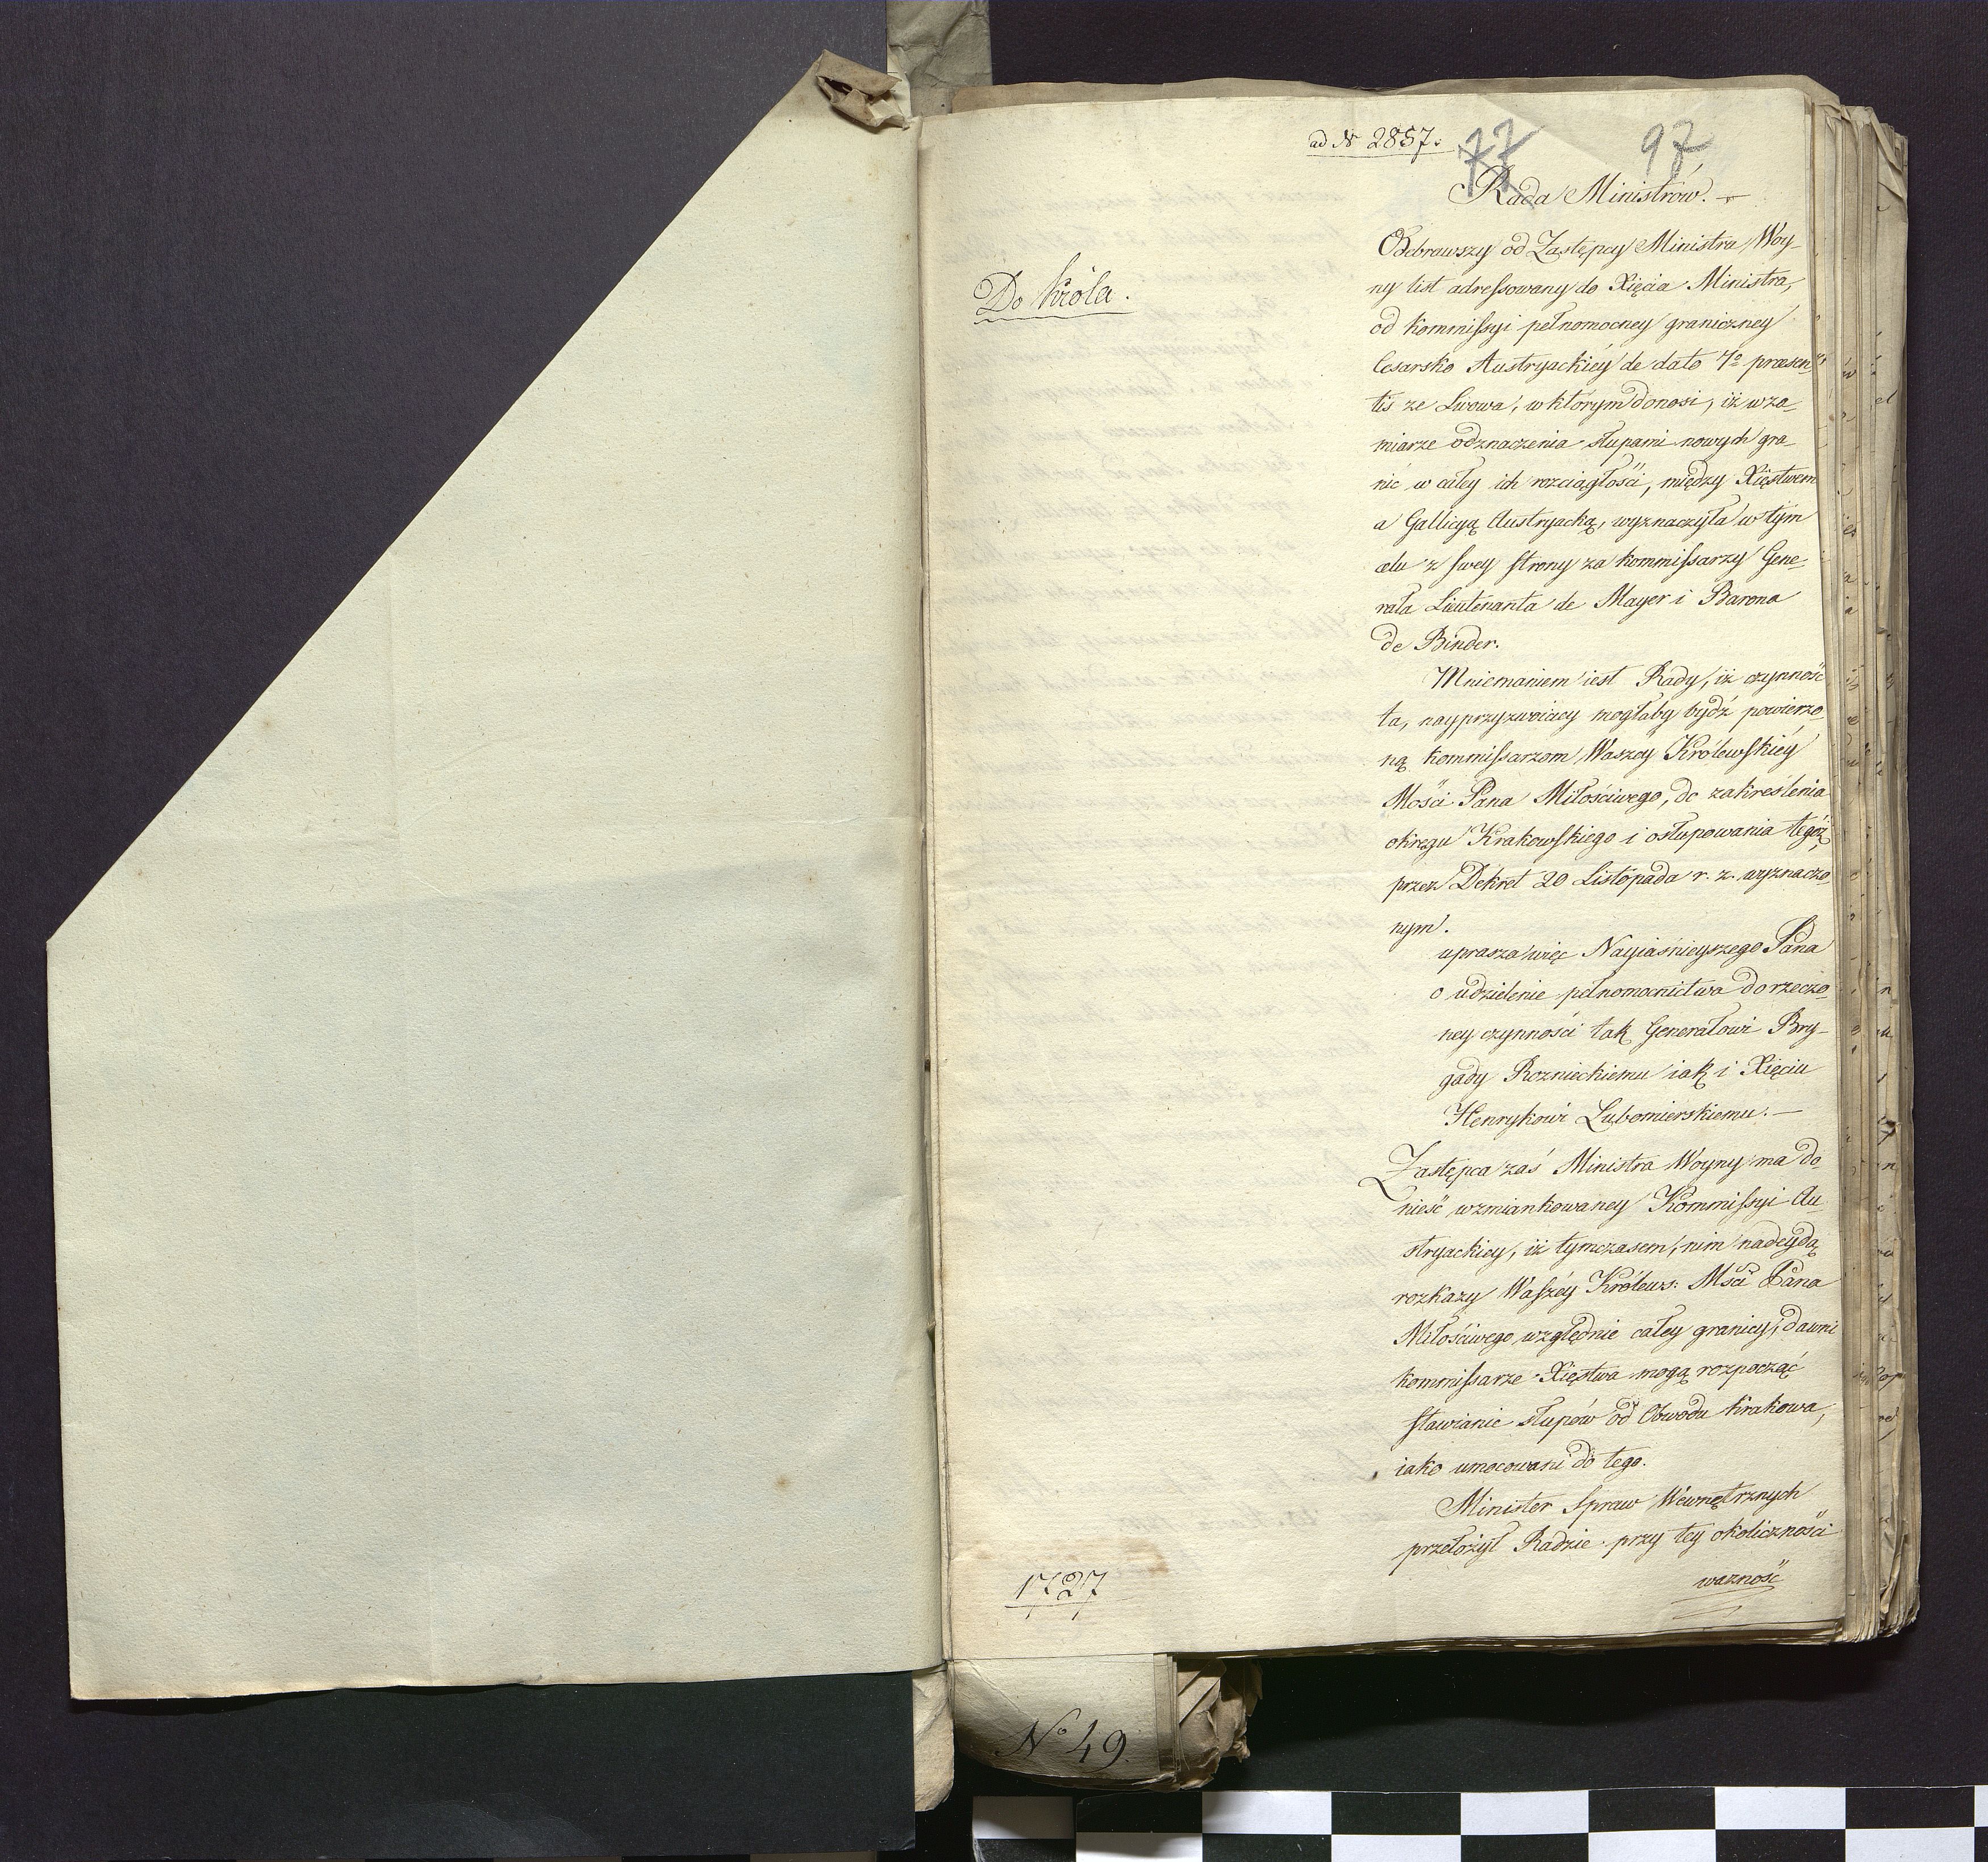 ad N 2857.
77 97
Rada Ministrów. —
Do Króla.
Odebrawszy od Zastępcy Ministra Woy-
ny list adressowany do Xięcia Ministra,
od kommissyi pełnomocney graniczney
Cesarsko Austryackiéy de dato 7º præsen-
tis ze Lwowa, w którym donosi, iż w za-
miarze odznaczenia słupami nowych gra-
nic w całey ich rozciągłości, między Xięstwem
a Gallicyą Austryacką, wyznaczyła w tym
celu z swey strony za kommissarzy Gene-
rała Lieutenanta de Mayer i Barona
de Binder.
Mniemaniem iest Rady, iż czynność
ta, nayprzyzwoiciey mogłaby bydź powierzo-
ną kommissarzom Waszey Królewskiéy
Mości Pana Miłościwego, do zakreślenia
okręgu Krakowskiego i osłupowania tegoż,
przez Dekret 20 Listopada r. z. wyznaczo-
nym.
uprasza więc Nayiaśnieyszego Pana
o udzielenie pełnomocnictwa do rzeczo-
ney czynności tak Generałowi Bry-
gady Roznieckiemu iak i Xięciu
Henrykowi Lubomierskiemu. —
Zastępca zaś Ministra Woyny ma do-
nieść wzmiankowaney Kommissyi Au-
stryackiey, iż tymczasem, nim nadeydą
rozkazy Waszéy Królews: Mści Pana
Miłościwego względnie całey granicy, dawni
kommissarze Xięstwa mogą rozpocząć
stawianie słupów od Obwodu Krakowa,
iako umocowani do tego.
Minister Spraw Wewnętrznych
przełożył Radzie przy tey okoliczności
ważność
1727
Nº 49